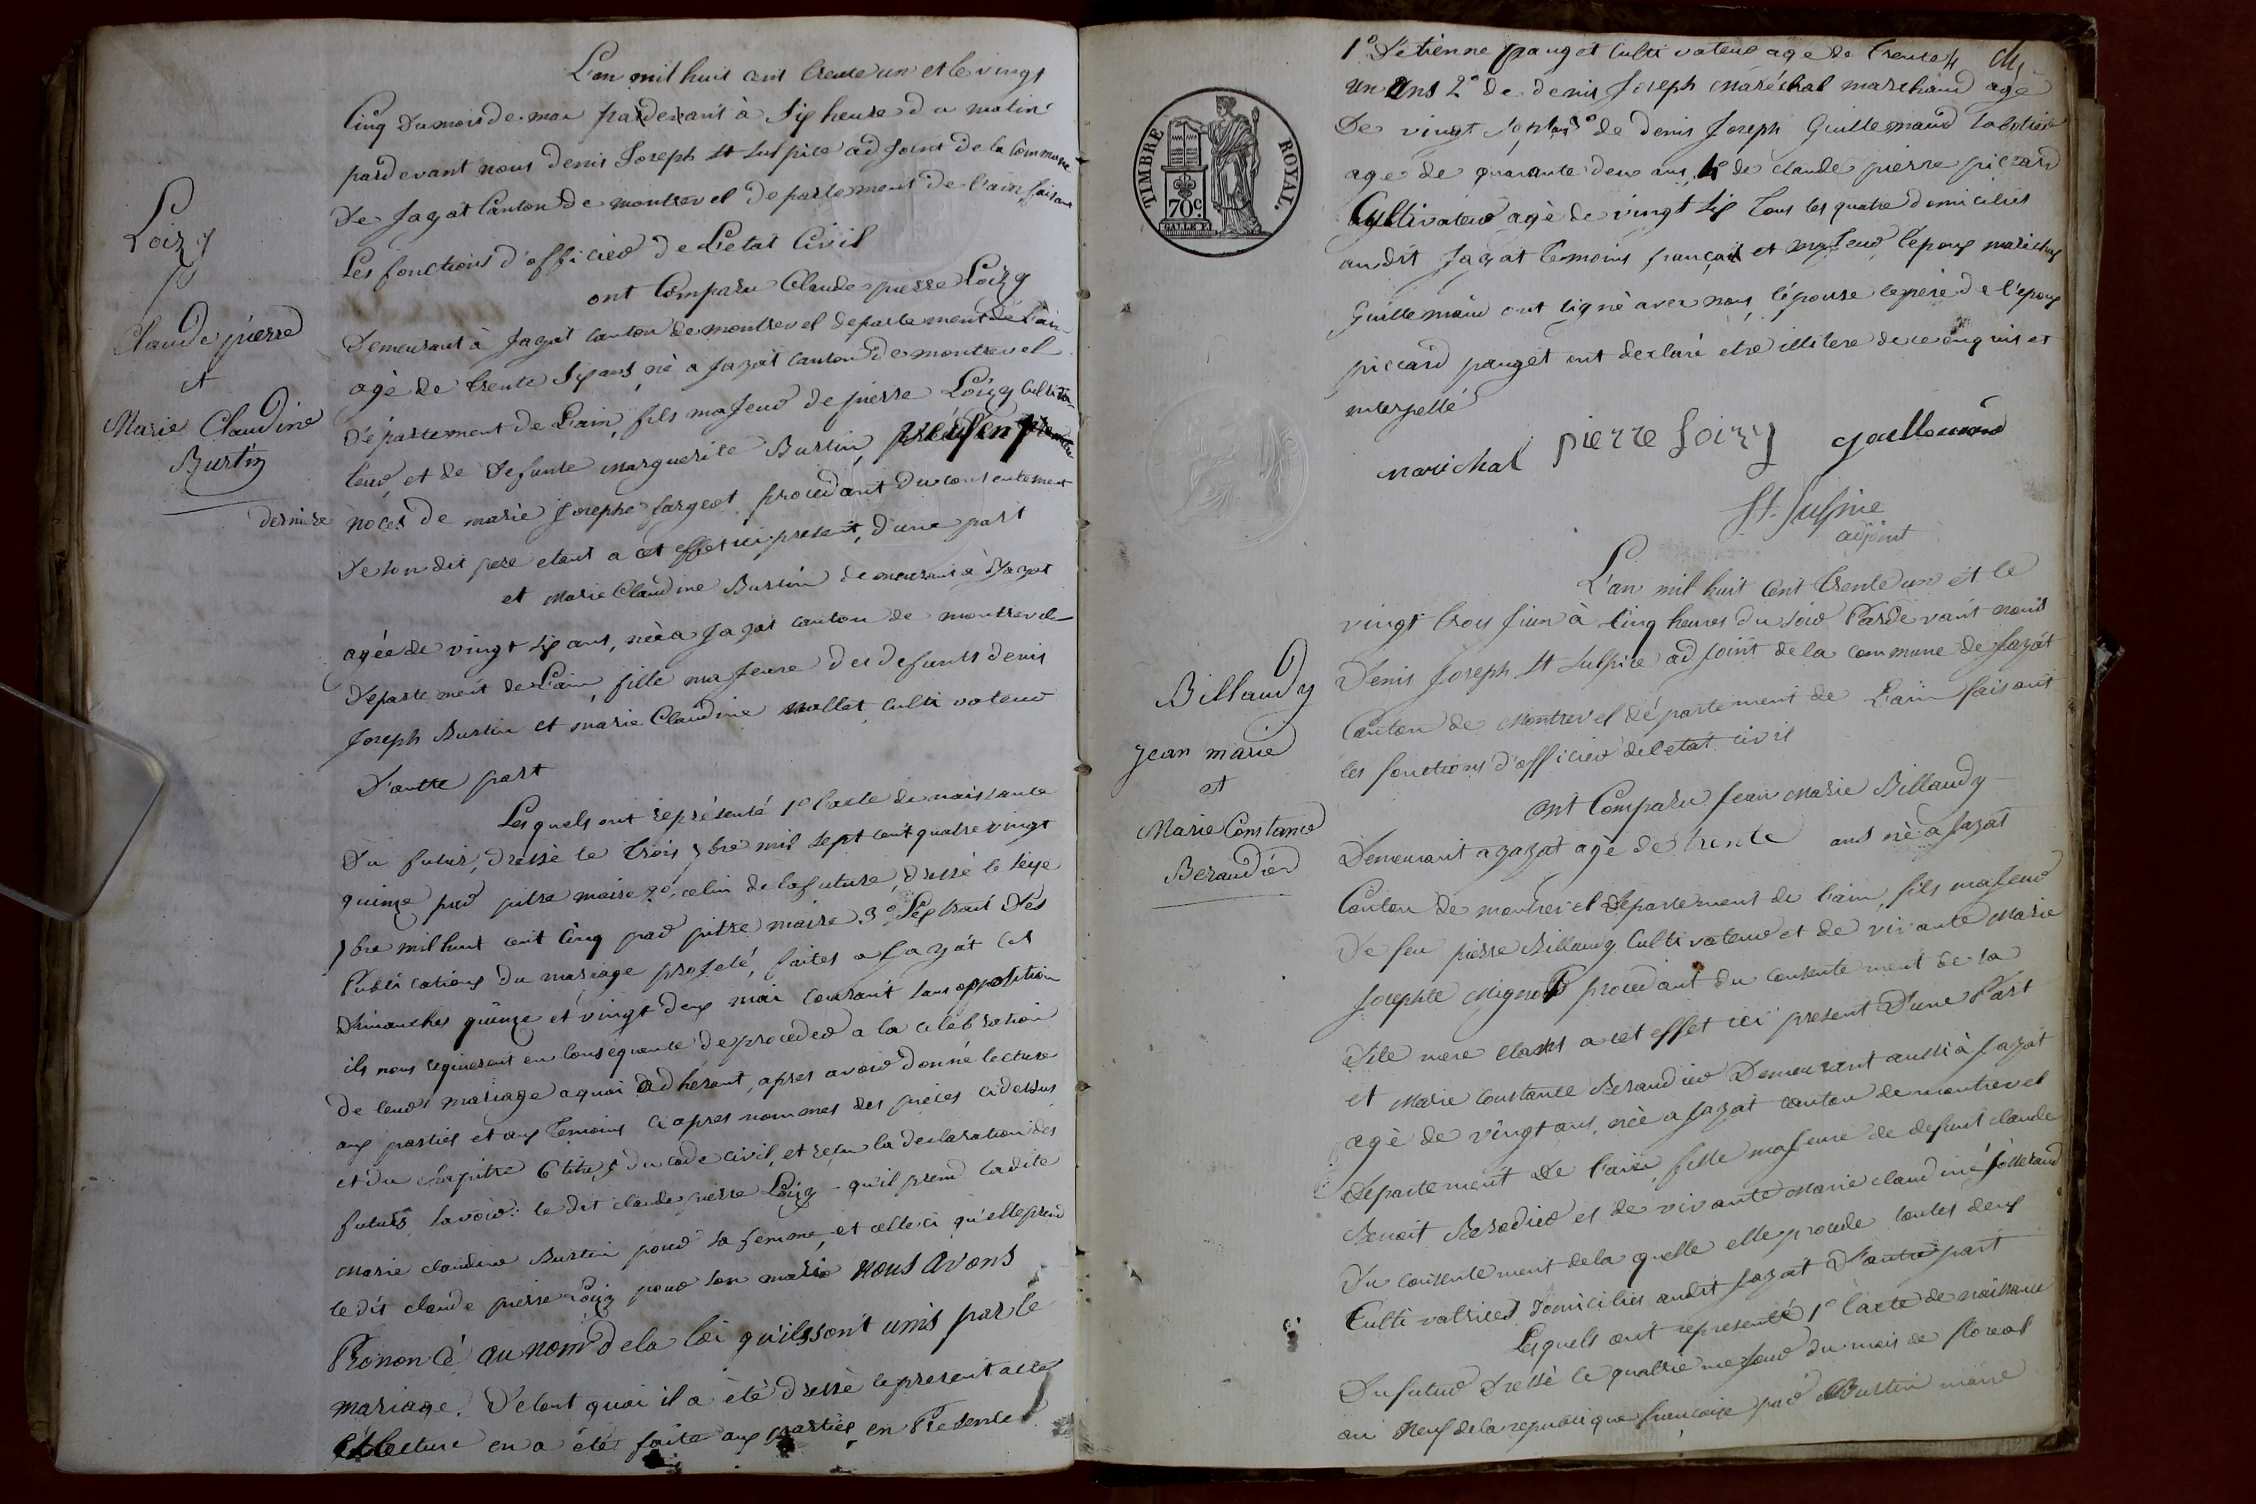 L'an mil huit cent trente un et le vingt
cinq du mois de mai pardevant à Six heures du matin
pardevant nous denis Joseph St Sulpice adjoint de la Commune
De Jayat Canton de montrevel departement de l'ain faisant
Les fonctions d'officier de L'etat Civil
ont Comparu Claude pierre Loizy
Demeurant à Jayat canton de montrevel departement de L'ain
agé de trente Six ans né a Jayat canton de montrevel
Département de L'ain, fils majeur de pierre Loizy Cultiva
teur et de defunte marguerite Burtin présent
noces de marie Josephe fargeot procedant du consentement
De son dit pere etant a cet effet ici present, d'une part
et Marie Claudine Burtin demeurant à Jayat
agée de vingt six ans, née a Jayat canton de montrevel
Departement de L'ain, fille majeure des defunts denis
Joseph Burtin et marie Claudine mollet cultivateur
D'autre part
Les quels ont représenté 1º l'acte de naissance
Du futur, dressé le trois 7bre mil sept cent quatre vingt
quinze par pitre maire 2º, celui de la future, dressé le seize
7bre mil huit cent cinq par pitre maire 3º l'extrait des
Publications du mariage projeté, faites a Jayat les
Dimanches quinze et vingt deux mai courant sans opposition
ils nous requierent en consequence de proceder a la célébration
de leur mariage a quoi adhérant, apres avoir donné lecture
aux parties et aux temoins ci apres nommes des pièces ci dessus
et du chapitre 6 titre 5 du code civil, et reçu la declaration des
futurs savoir: le dit claude pierre Loizy qu'il prend la dite
Marie claudine Burtin pour sa femme, et celle ci qu'elle prend
le dit claude pierre Loizy pour son mari nous avons
Prononcé au nom de la loi qu'ils sont unis par le
mariage. De tout quoi il a été dressé le present acte
et lecture en a été faite aux parties en Présence
Loizy
Claude pierre
et
Marie Claudine
Burtin
derniere
1º D'étienne pauget Cultivateur agé de trente
un ans 2º de denis Joseph Maréchal marchand agé
De vingt sept ans 3º de denis Joseph Guillemaud
agé de quarante deux ans, 4º de claude pierre piccard
Cultivateur agé de vingt six tous les quatre domiciliés
audit Jayat temoins français et majeur l'epoux marichal
Guillemaud ont signé avec nous, l'épouse le père de l'epoux
piccard pauget ont declaré etre illitere de ce enquis et
interpellé
marichal pierre Loizy guillemaud
St. Sulpice
adjoint
L'an mil huit cent trente un et le
vingt trois juin à cinq heures du soir Pardevant nous
Denis Joseph St Sulpice adjoint de la commune de Jayat
Canton de Montrevel département de L'ain faisant
les fonctions d'officier de l'etat civil
Ont Comparu Jean Marie Billaudy
Demeurant a Jayat agé de trente ans né a Jayat
Canton de montrevel departement de l'ain, fils majeur
De feu pierre Billaudy Cultivateur et de vivante Marie
Josephte Mignot procedant du consentement de sa
Dite mere etant a cet effet ici present D'une Part
et Marie Constance Beraudier Demeurant aussi à Jayat
agé de vingt ans, née a Jayat canton de montrevel
Departement de l'ain, fille majeure de defunt claude
Benoit Beraudier et de vivante Marie claudine
Du consentement de la quelle elle procede toutes deux
Cultivatrices Domiciliés audit Jayat D'autre part
Lesquels ont representé 1º l'acte de naissance
Du futur Dressé le quatrieme jour du mois de floreal
an Neuf de la republique française par Burtin maire
Billaudy
Jean marie
et
Marie Constance
Beraudier
TIMBRE ROYAL.
70c.